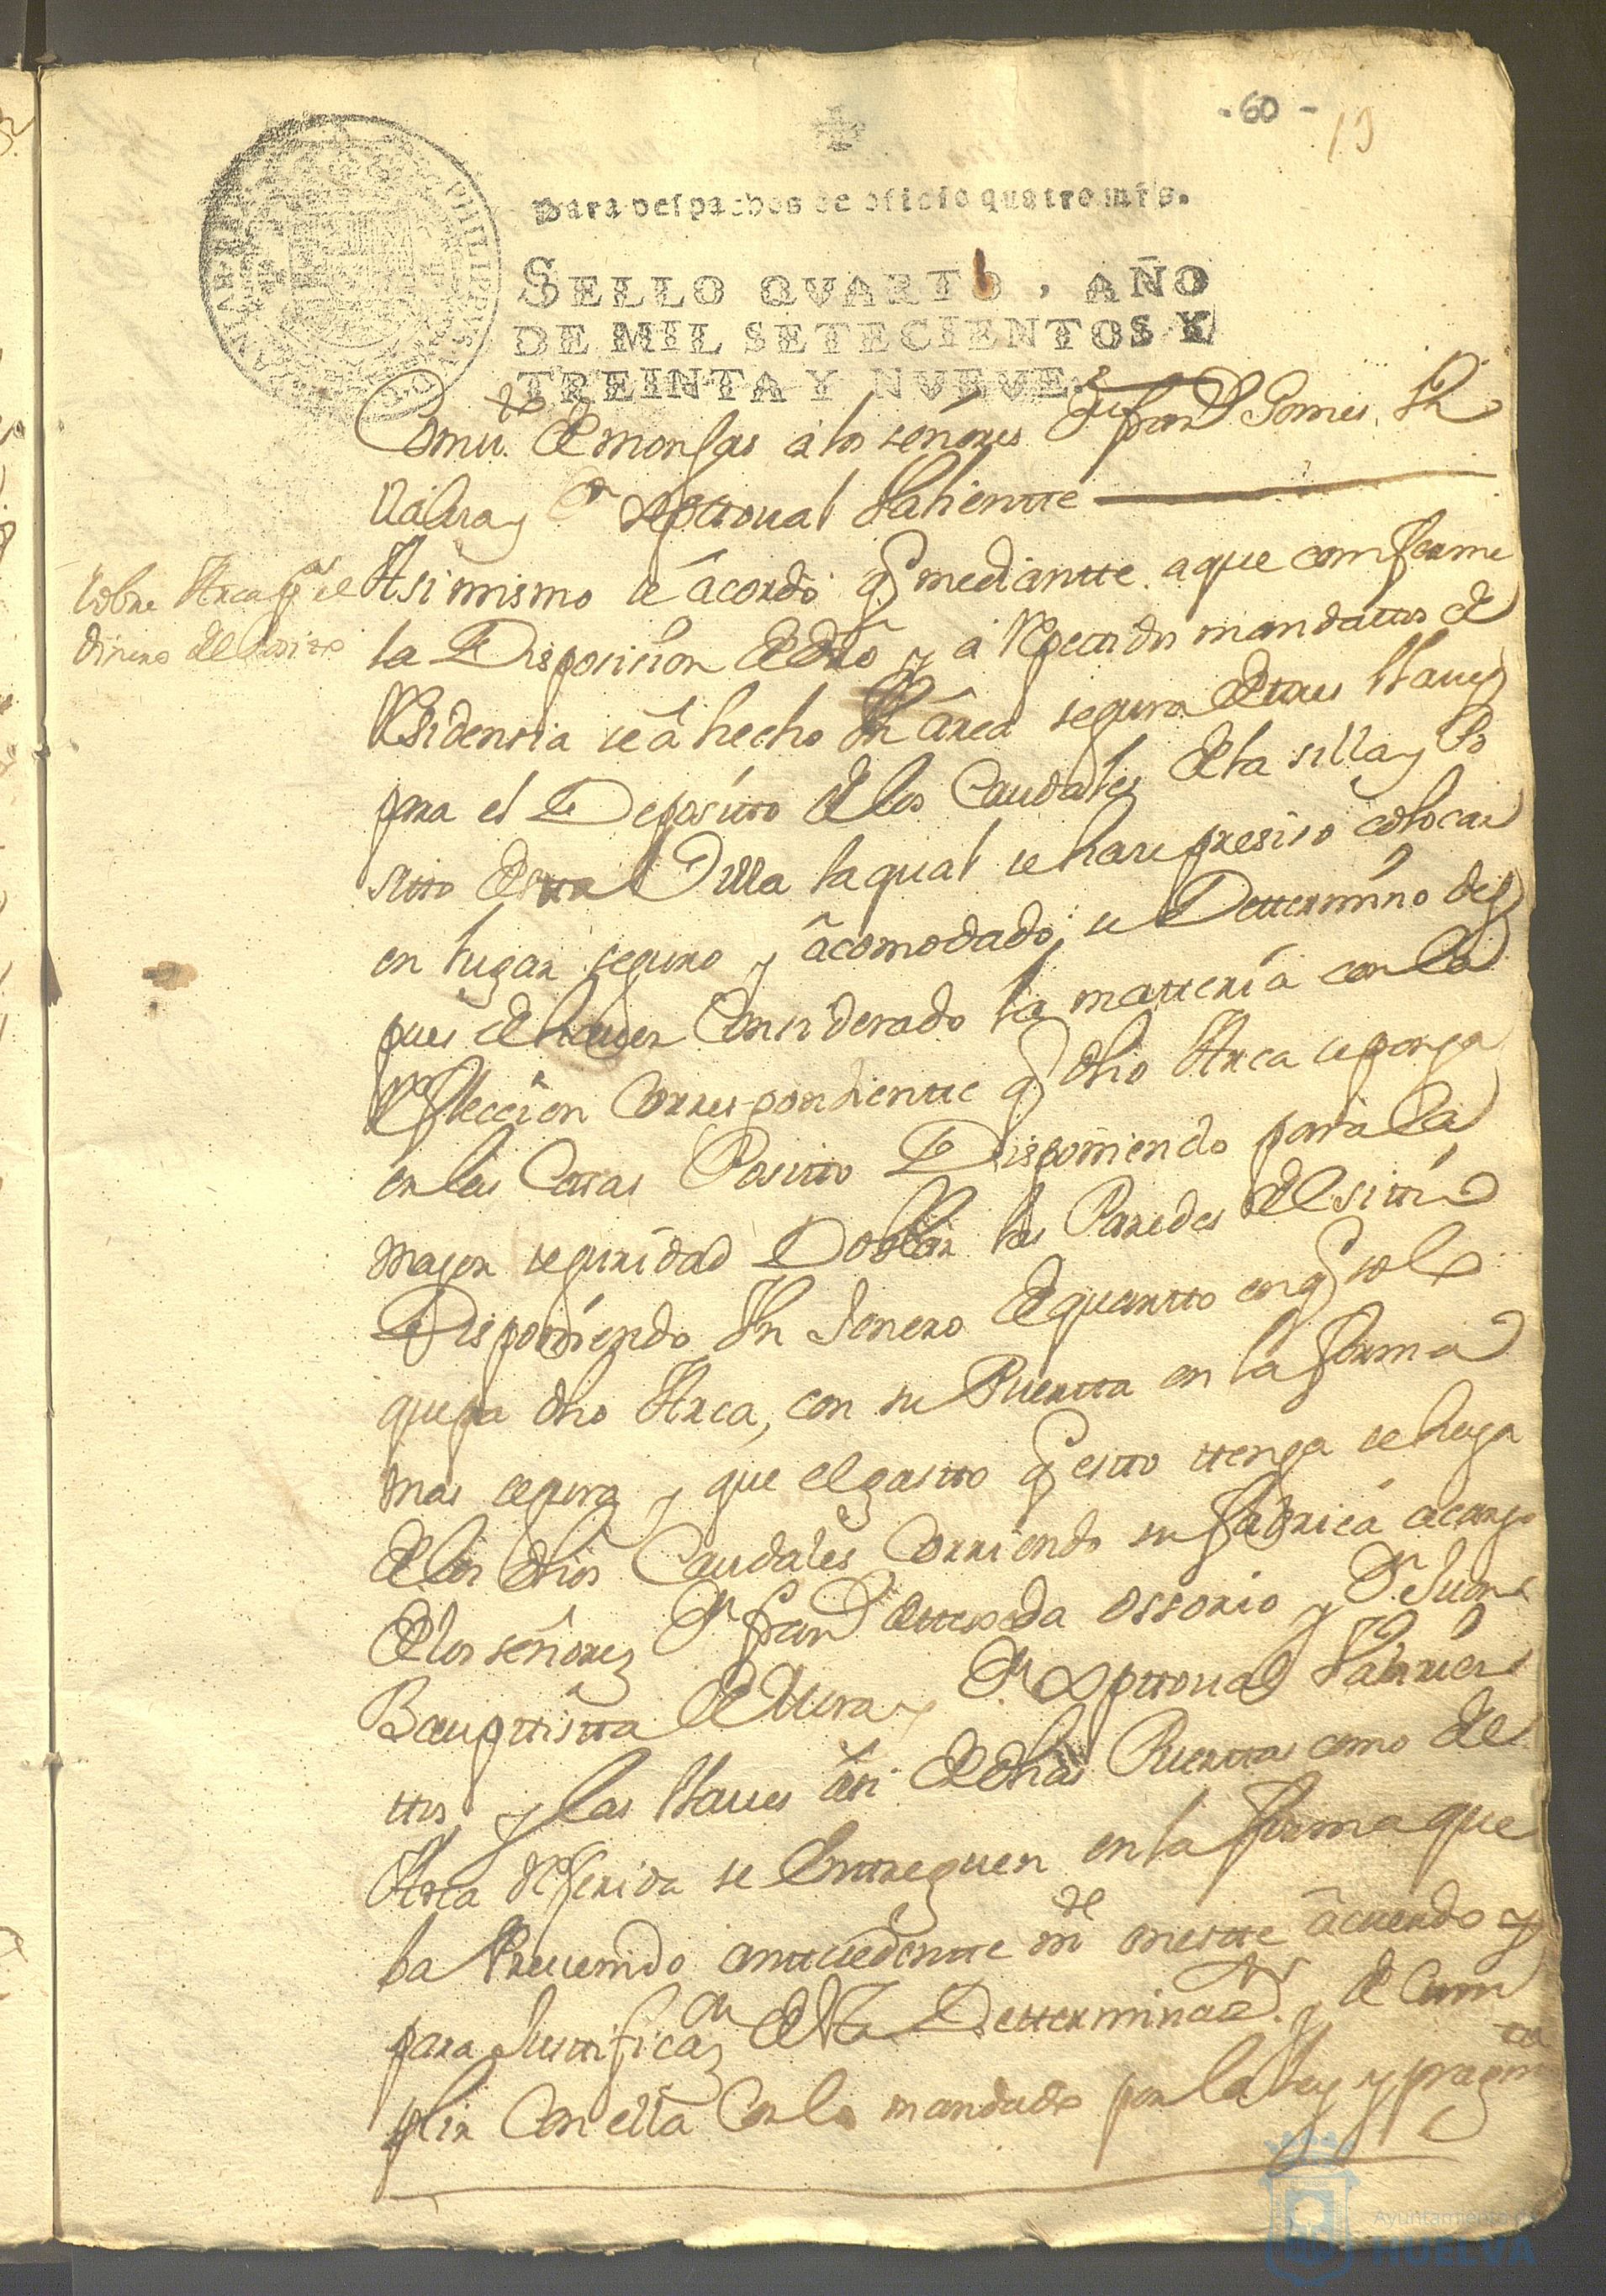 - 60 -
19
Para despachos de oficio quatro mrs.
SELLO QVARTO, AÑO
DE MIL SETECIENTOS Y
TREINTA Y NVEVE.
PHILIPPVS
Comu.de de monjas a los señores Dn fran.co Gomes
y Dn Xpttoual
Sobre Arca pa el
dinero del Posito
Asimismo se acordo q mediantte a que comforme
la Disposision de dro y a Repetidos mandattos de
Residensia se a hecho Vn arca segura de tres llaues
para el Deposito de los Caudales de la silla y Po
sitto de esta Villa la qual se hase presiso colocar
en lugar seguro y acomodado; se Dettermino des
pues de hauer Considerado la matteria con la
Reflecçion Correspondientte q dho Arca se ponga
en las Casas Positto Disponiendo para la
mayor seguridad Doblar las Paredes del sittio
Disponiendo Vn Jenero de quartto en q solo
quepa dho Arca, con su Puertta en la forma
mas segura y que el gastto q estto ttenga se haga
de los dhos Caudales Corriendo su fabrica a cargo
de los señores Dn fran.co de ttexada Ossorio y Dn Juan
Baupttistta de Vera y Dn Xpttoual
ttos, y las llaues asi de dhas Puerttas como del
Arca Referida se Enttreguen en la forma que
ba Preuenido anttesedentte mte en estte acuerdo y
para Justtificazn de la Detterminaz.on y de Cum
plir Con ella Con lo mandado por la ley y pragm
ca
Ayuntamiento de
HUELVA